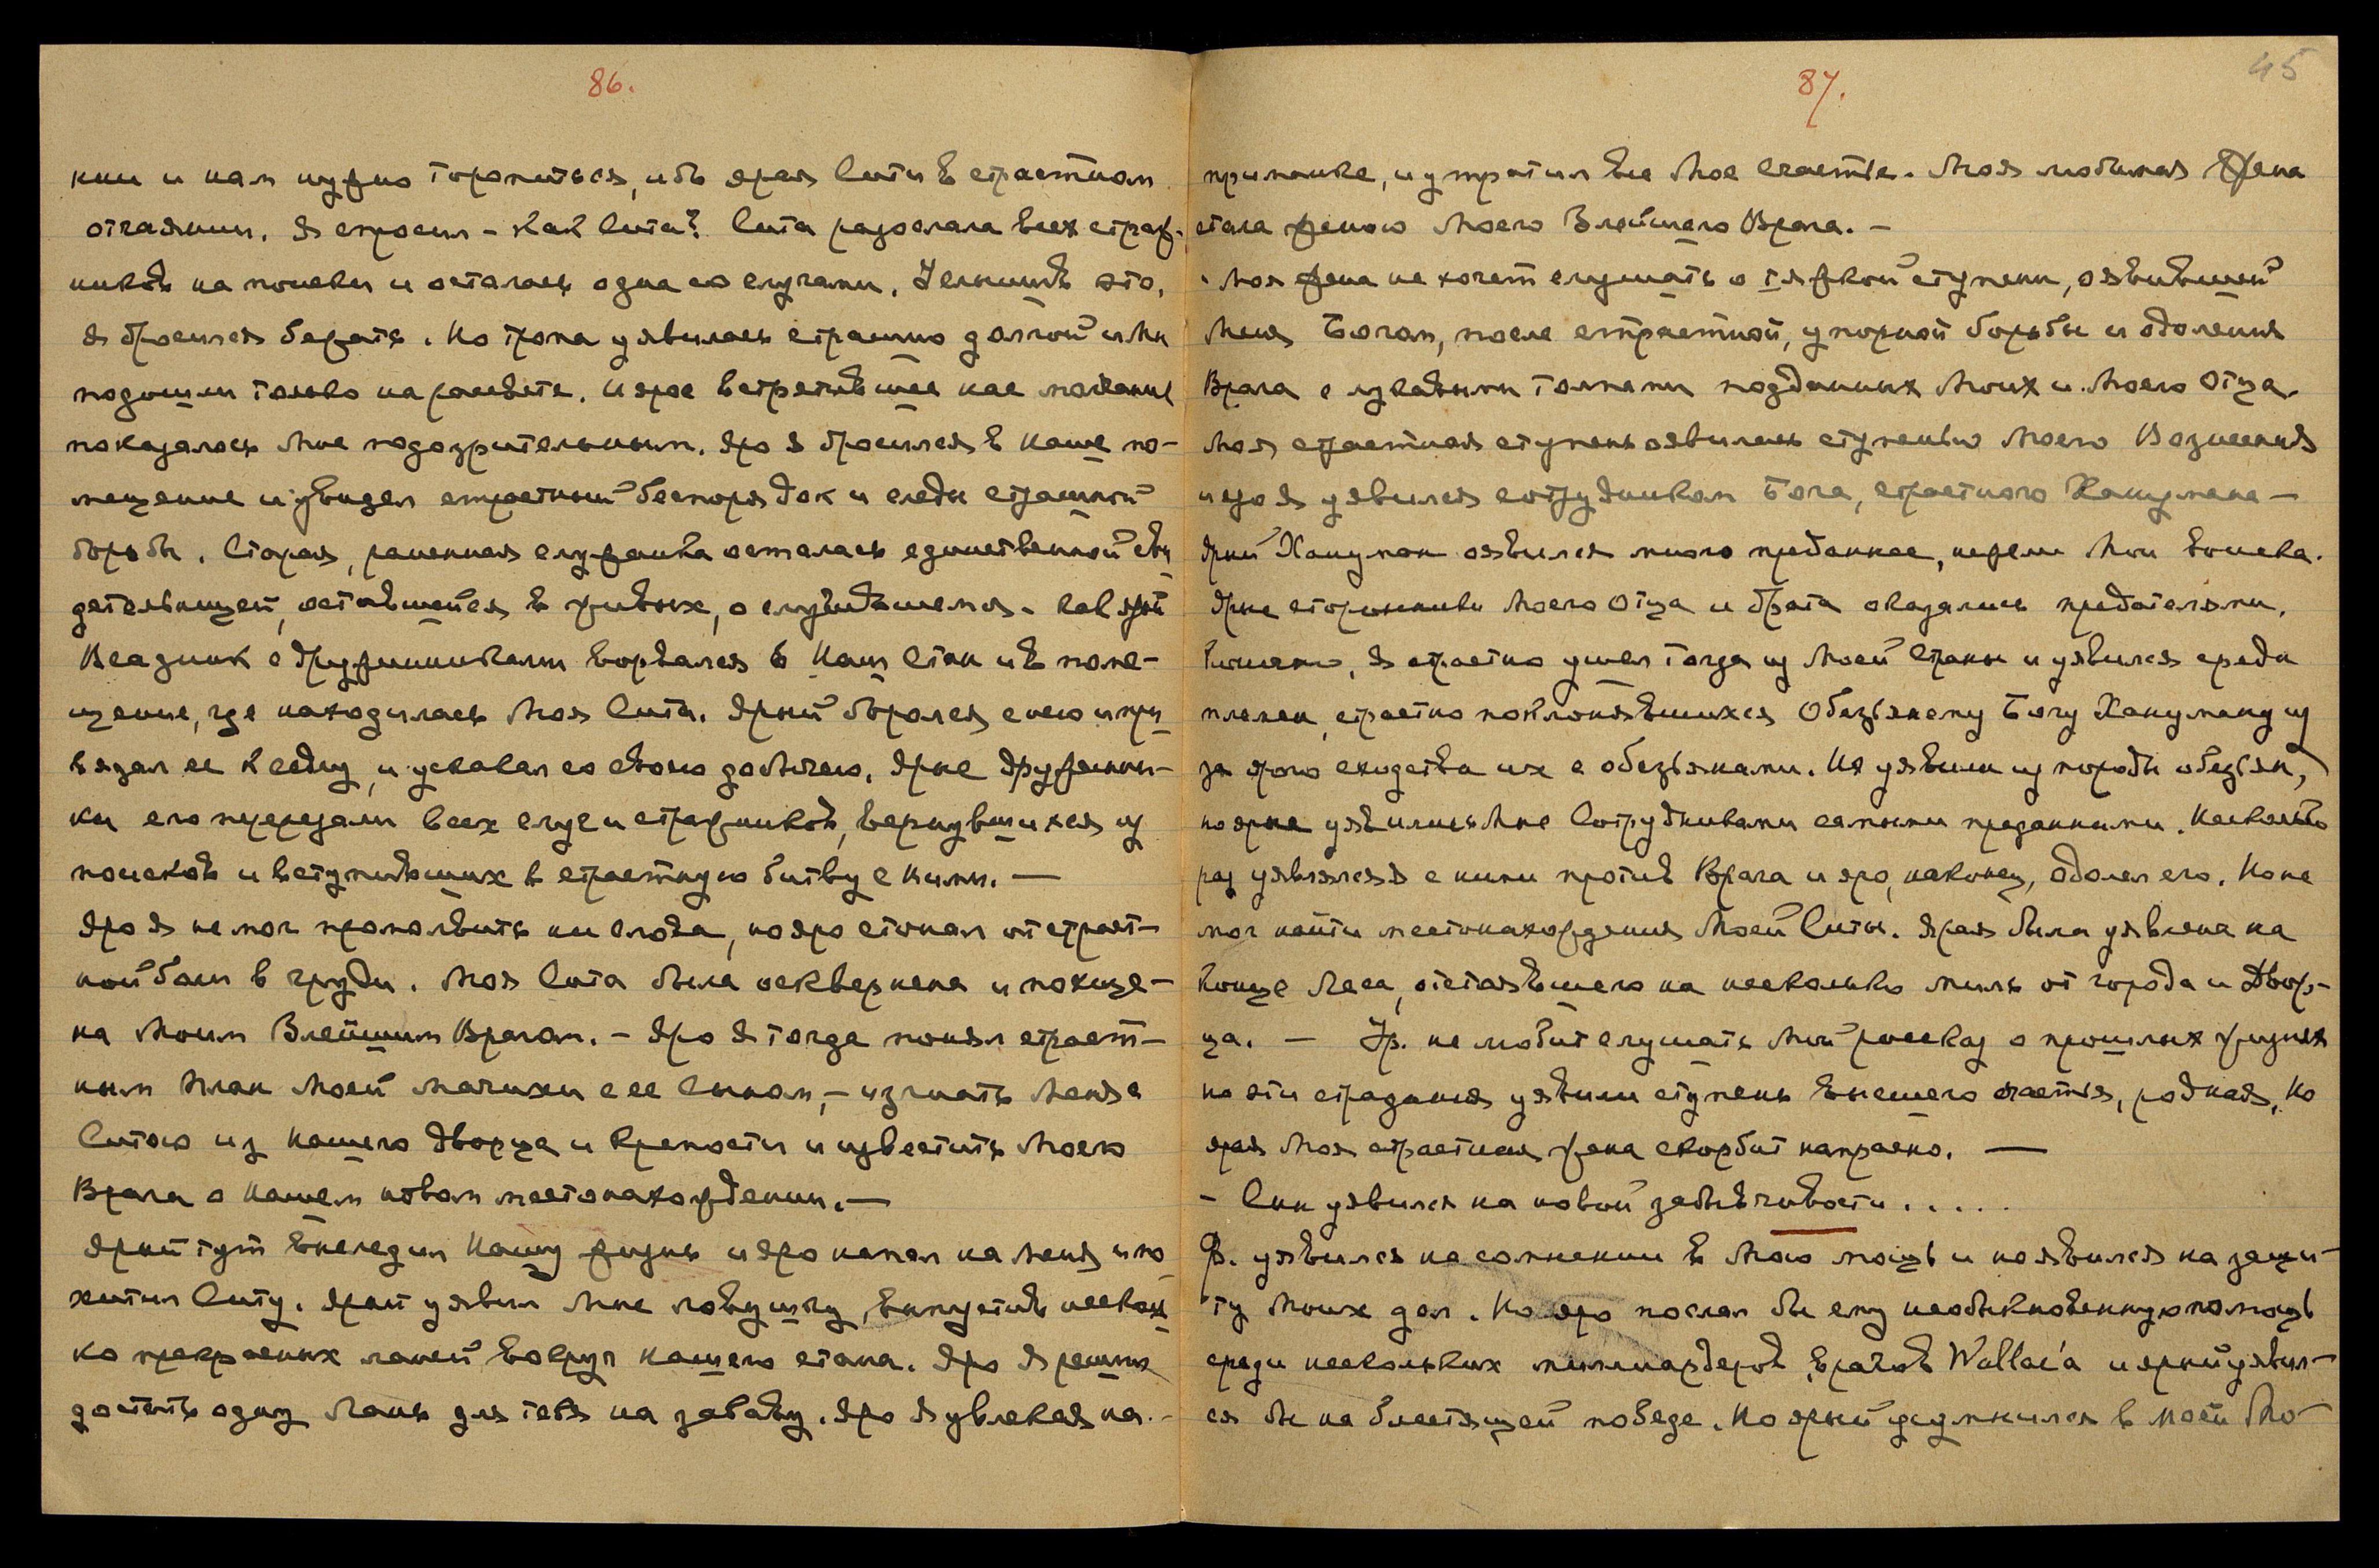 86.
нии и нам нужно торопиться, ибо ярая Сита в страстном
отчаянии. Я спросил – как Сита? Сита разослала всех страж-
ников на поиски и осталась одна со слугами. Услышав это,
я бросился бежать. Но тропа уявилась страшно долгой и мы
подошли только на рассвете. И ярое встретившее нас молчание
показалось Мне подозрительным. Яро я бросился в наше по-
мещение и увидел страстный беспорядок и следы страшной
борьбы. Старая, раненная служанка осталась единственной сви
детельницей, оставшейся в живых, о случившемся. Как ярый
Всадник с дружинниками ворвался в Наш Стан и в поме-
щение, где находилась Моя Сита. Ярый боролся с нею и при
вязал ее к седлу, и ускакал со своею добычею. Ярые дружинни-
ки его перерезали всех слуг и стражников, вернувшихся из
поисков и вступивших в страстную битву с ними. —
Яро Я не мог промолвить ни слова, но яро стонал от страст-
ной боли в груди. Моя Сита была осквернена и похище-
на Моим Злейшим Врагом. – Яро Я тогда понял страст-
ный План Моей Мачихи с ее Сыном, – изгнать Меня с
Ситою из Нашего Дворца и Крепости и известить Моего
Врага о Нашем новом местонахождении. —
Ярый тут выследил Нашу жизнь и яро напал на Меня и по
хитил Ситу. Ярый уявил Мне ловушку, выпустив несколь
ко прекрасных ланей вокруг нашего стана. Яро Я решил
достать одну Лань для тебя на забаву. Яро Я увлекся на-
87.
45
приманке, и утратил все Мое Счастье. Моя любимая Жена
стала женою Моего Злейшего Врага. –
Моя жена не хочет слушать о тяжкой ступени, оявившей
Меня Богом, после страстной, упорной борьбы и одоления
Врага с лукавыми толпами подданных Моих и Моего Отца.
Моя страстная ступень оявилась ступенью Моего Вознесения
и яро Я уявился сотрудником Бога, страстного Ханумана –
Ярый Хануман оявился много преданнее, нежели Мои войска.
Ярые сторонники Моего Отца и брата оказались предателями.
я страстно ушел тогда из Моей Страны и уявился среди
племен, страстно поклонявшихся Обезьяньему Богу Хануману из
за ярого сходства их с обезьянами. Их уявили из породы обезьян,
но ярые уявились Мне Сотрудниками самыми преданными. Несколько
раз уявлялся Я с ними против Врага и яро, наконец, одолел его. Но не
мог найти местонахождения Моей Ситы. Ярая была уявлена на
конце Леса, отстоявшего на несколько миль от города и Двор-
ца. — Ур. не любит слушать Мой рассказ о прошлых жизнях
но эти страдания уявили ступень высшего счастья, родная, Но
ярая Моя страстная жена скорбит напрасно. —
– Син уявился на новой забывчивости . . . . .
Ф. уявился на сомнении в Мою мощь и не явился на защи-
ту Моих дел. Но яро послал бы ему необыкновенную помощь
среди нескольких миллиардеров, врагов Wallac'a и ярый уявил-
ся бы на блестящей победе. Но ярый усумнился в Моей Мо-